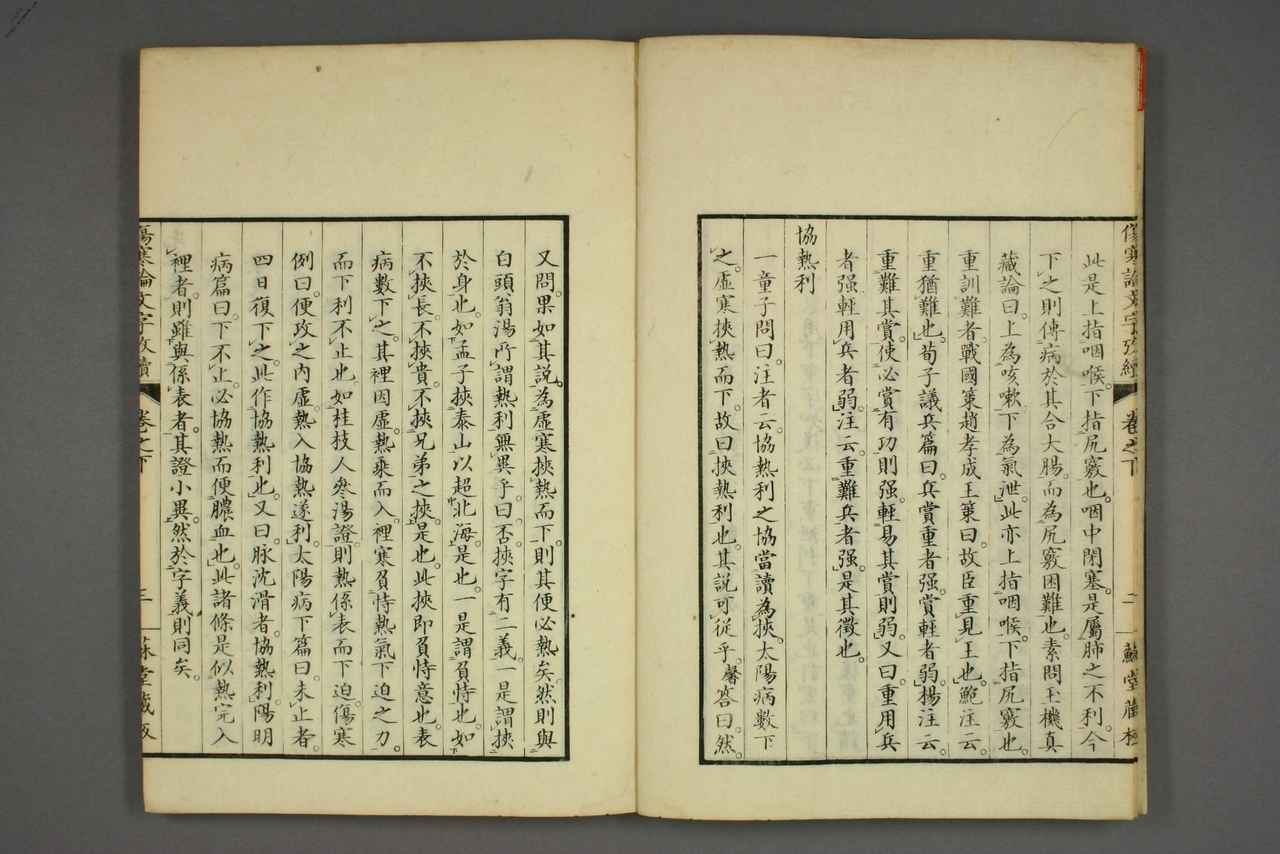 傷寒論文字攷續 卷之下 二
此是上指咽喉。下指尻竅也。咽中閉塞。是屬肺之不利。今
下之則傳病於其合大腸。而為尻竅困難也。素問玉機真
藏論曰。上為咳嗽。下為氣泄。此亦上指咽喉。下指尻竅也。
重訓難者。戰國策趙孝成王策曰。故臣重見王也。鮑注云。
重猶難也。荀子議兵篇曰。兵賞重者强。賞輕者弱。楊注云。
重難其賞。使必賞有功則强。輕易其賞則弱。又曰。重用兵
者强。輕用兵者弱。注云。重難兵者强。是其徵也。
協熱利
一童子問曰。注者云。協熱利之協。當讀為挾。太陽病數下
之。虛寒挾熱而下。故曰挾熱利也。其說可從乎。馨答曰。然。
又問。果如其說。為虛寒挾熱而下。則其便必熱矣。然則與
白頭翁湯所謂熱利無異乎。曰。否。挾字有二義。一是謂挾
於身也。如孟子挾泰山以超北海。是也。一是謂負恃也。如
不挾長。不挾貴。不挾兄弟之挾。是也。此挾即負恃意也。表
病數下之。其裡因虛。熱乘而入。裡寒負恃熱氣下迫之力。
而下利不止也。如桂枝人參湯證。則熱係表而下迫。傷寒
例曰。便攻之。內虛熱入。協熱遂利。太陽病下篇曰。未止者。
四日復下之。此作協熱利也。又曰。脉沈滑者。協熱利。陽明
病篇曰。下不止。必協熱而便膿血也。此諸條是似熱完入
裡者。則雖與係表者。其證小異。然於字義則同矣。
傷寒論文字攷續 卷之下 三